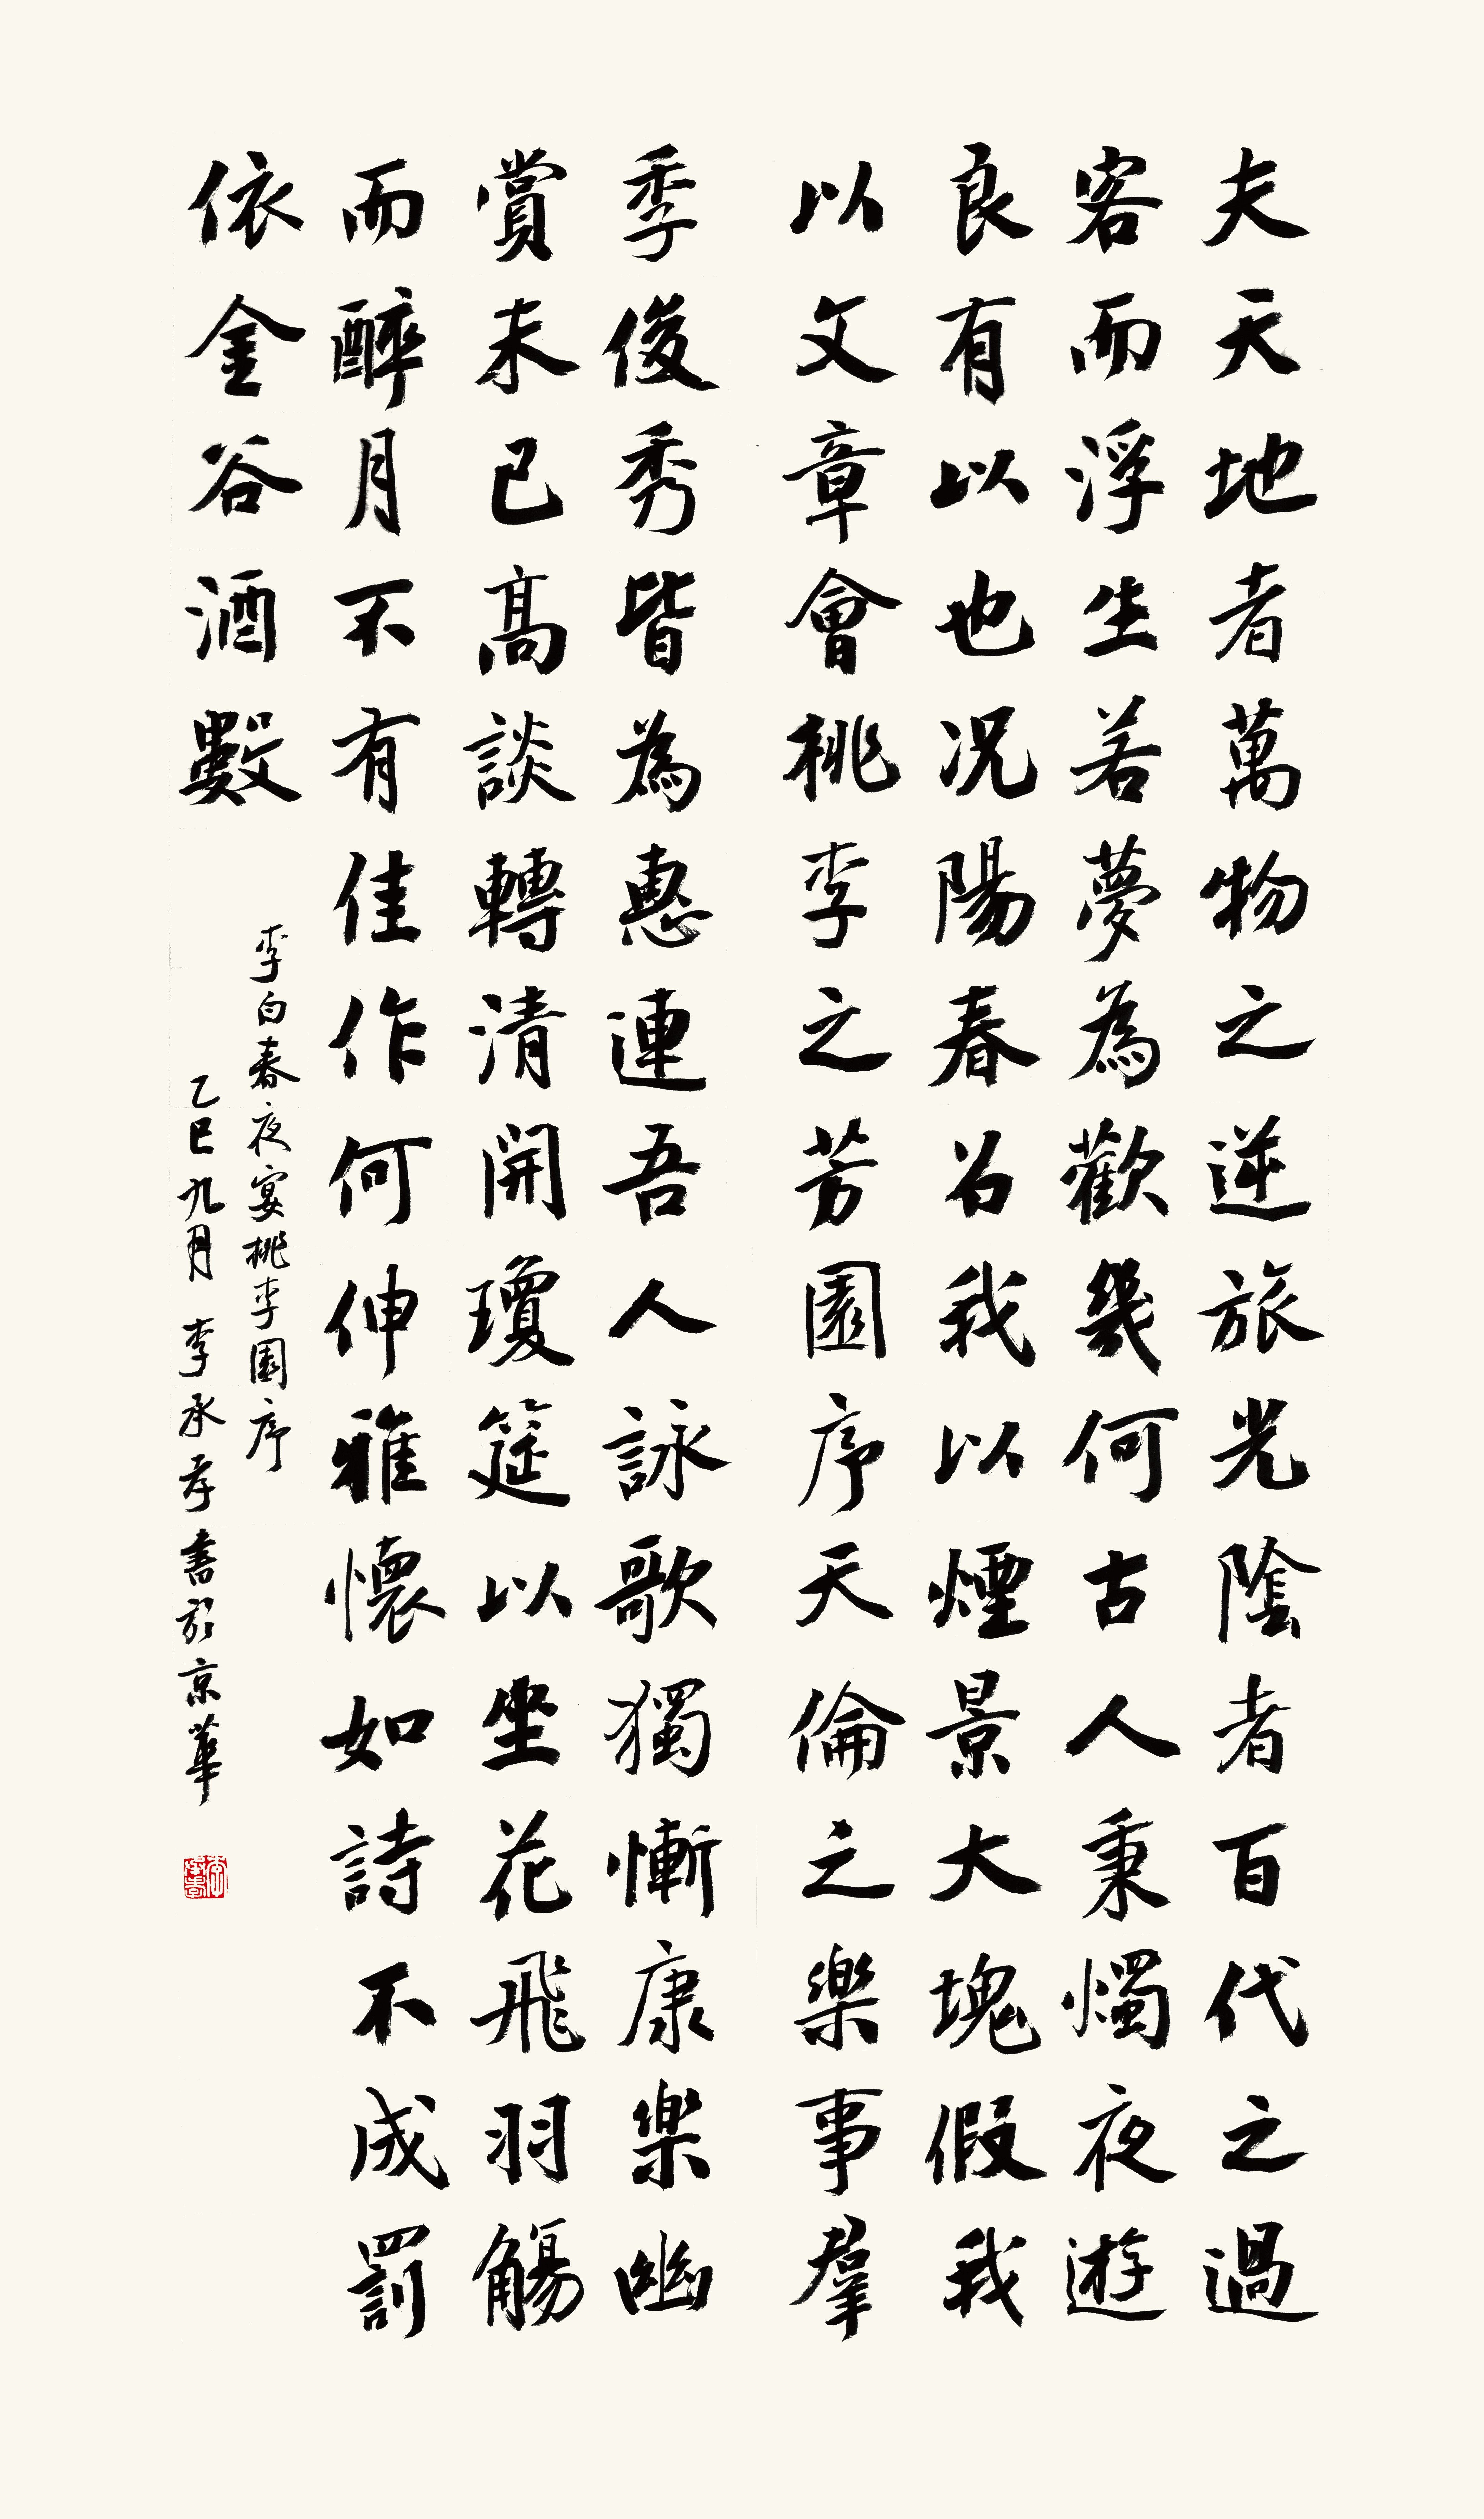 夫天地者萬物之逆旅光陰者百代之過
客而浮生若夢為歡幾何古人秉燭夜遊
良有以也况陽春召我以煙景大塊假我
以文章會桃李之芳園序天倫之樂事羣
季俊秀皆為惠連吾人詠歌獨慚康樂幽
賞未已高談轉清開瓊筵以坐花飛羽觴
而醉月不有佳作何伸雅懷如詩不成罰
依金谷酒數
李白春夜宴桃李園序
乙巳九月 李承孝書於京華